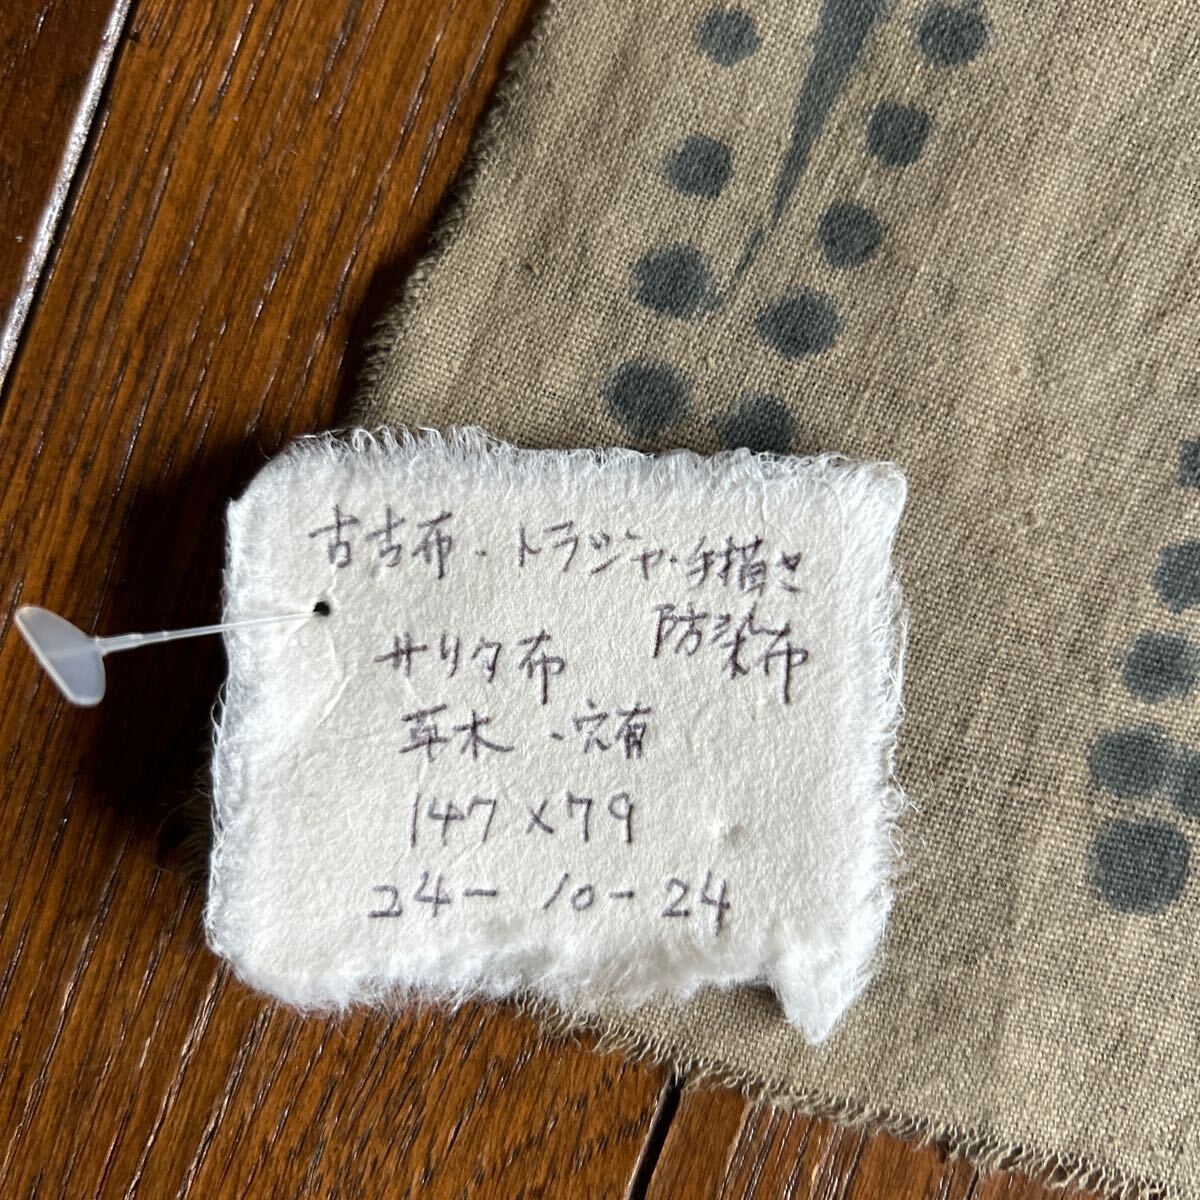 古吉布・トラジャ・手描き
防染布
サリタ布
草木・穴有
147×79
24-10-24